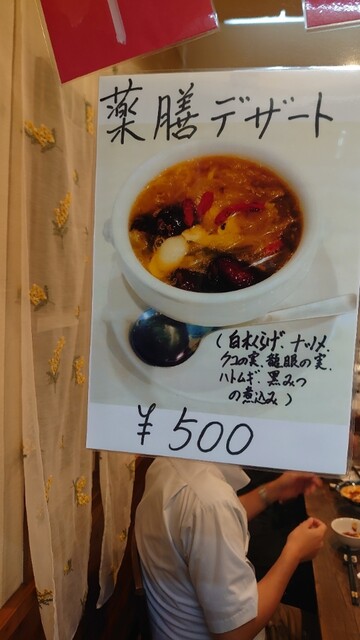 薬膳デザート
(白木くらげ、ナツメ、
クコの実、龍眼の実、
ハトムギ、黒みつ
の煮込み)
¥500